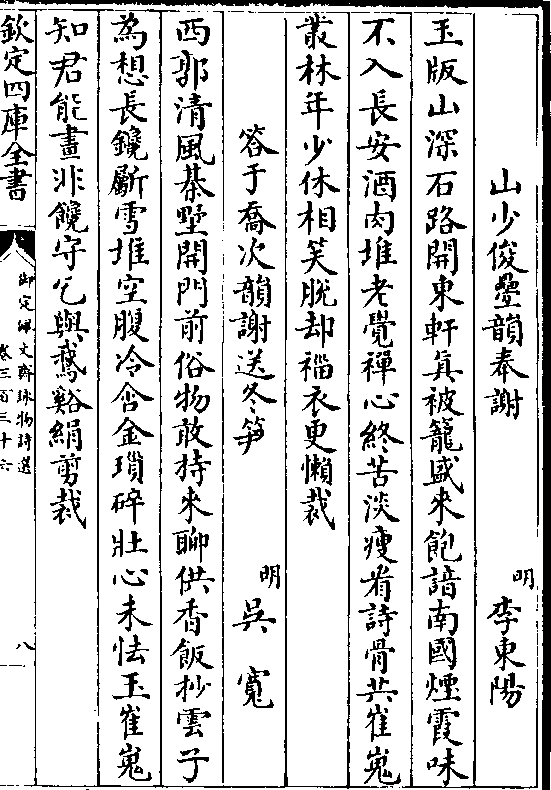 山少俊疊韻奉謝　明　李東陽
玉版山深石路開東軒真被籠盛來飽諳南國煙霞味
不入長安酒肉堆老覺禪心終苦淡瘦看詩骨共崔嵬
叢林年少休相笑脫却襠衣更懶裁
答于喬次韻謝送冬笋　明　吳寛
西郭清風棊墅開門前俗物敢持來聊供香飯抄雲子
為想長鑱斸雪堆空腹冷含金瑣碎壯心未怯玉崔嵬
知君能畫非饒守乞與鵞谿絹剪裁
欽定四庫全書
御定佩文齋詠物詩選
卷三百三十六
八